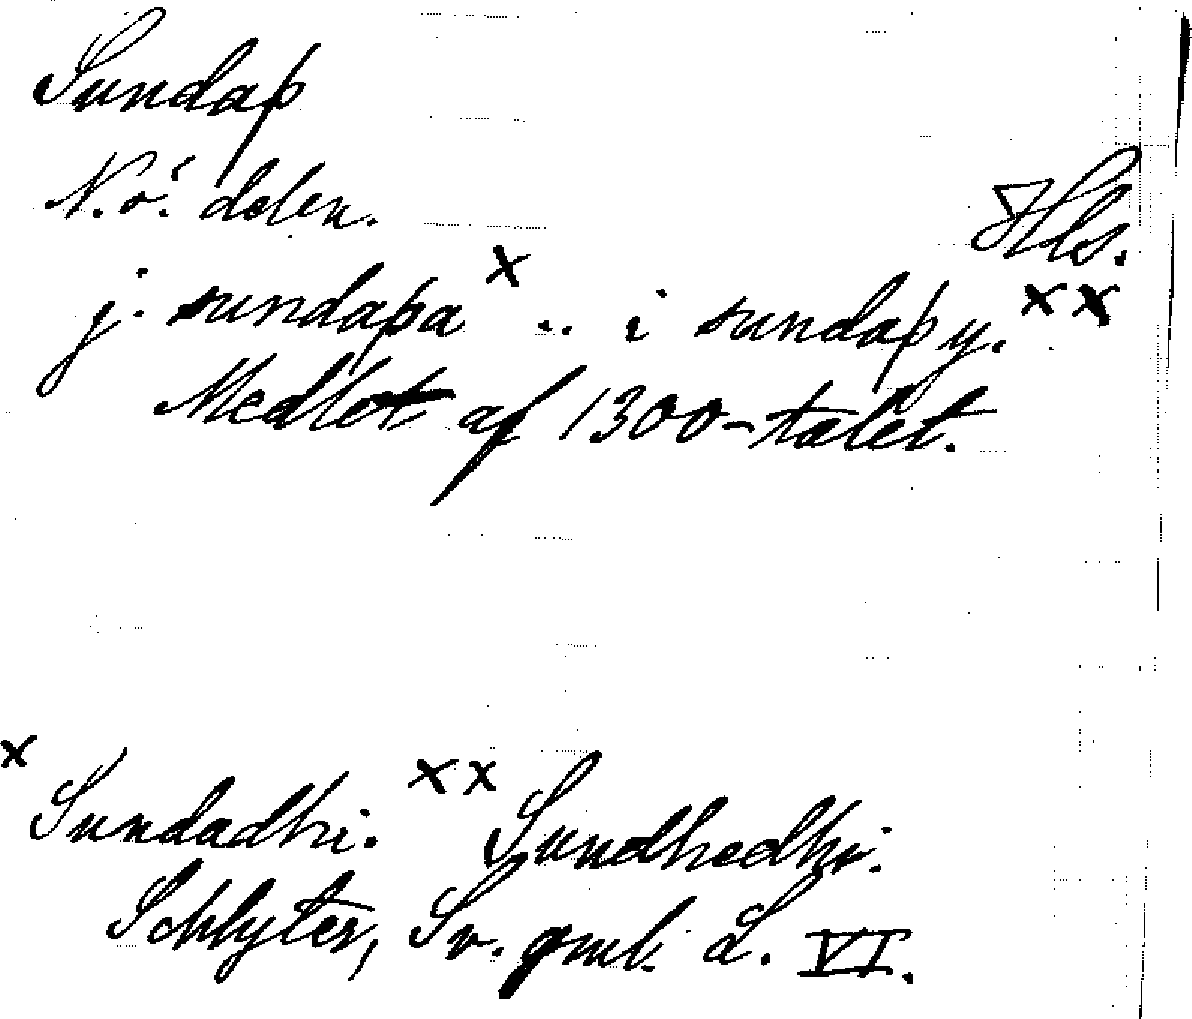 Sundaþ
N.ö. delen.
Hls.
j. sundaþa x .. i sundaþy. x x
Medlet af 1300-talet.
x Sundadhi. x x Sundhedhi.
Schlyter, Sv. gml. L. VI.